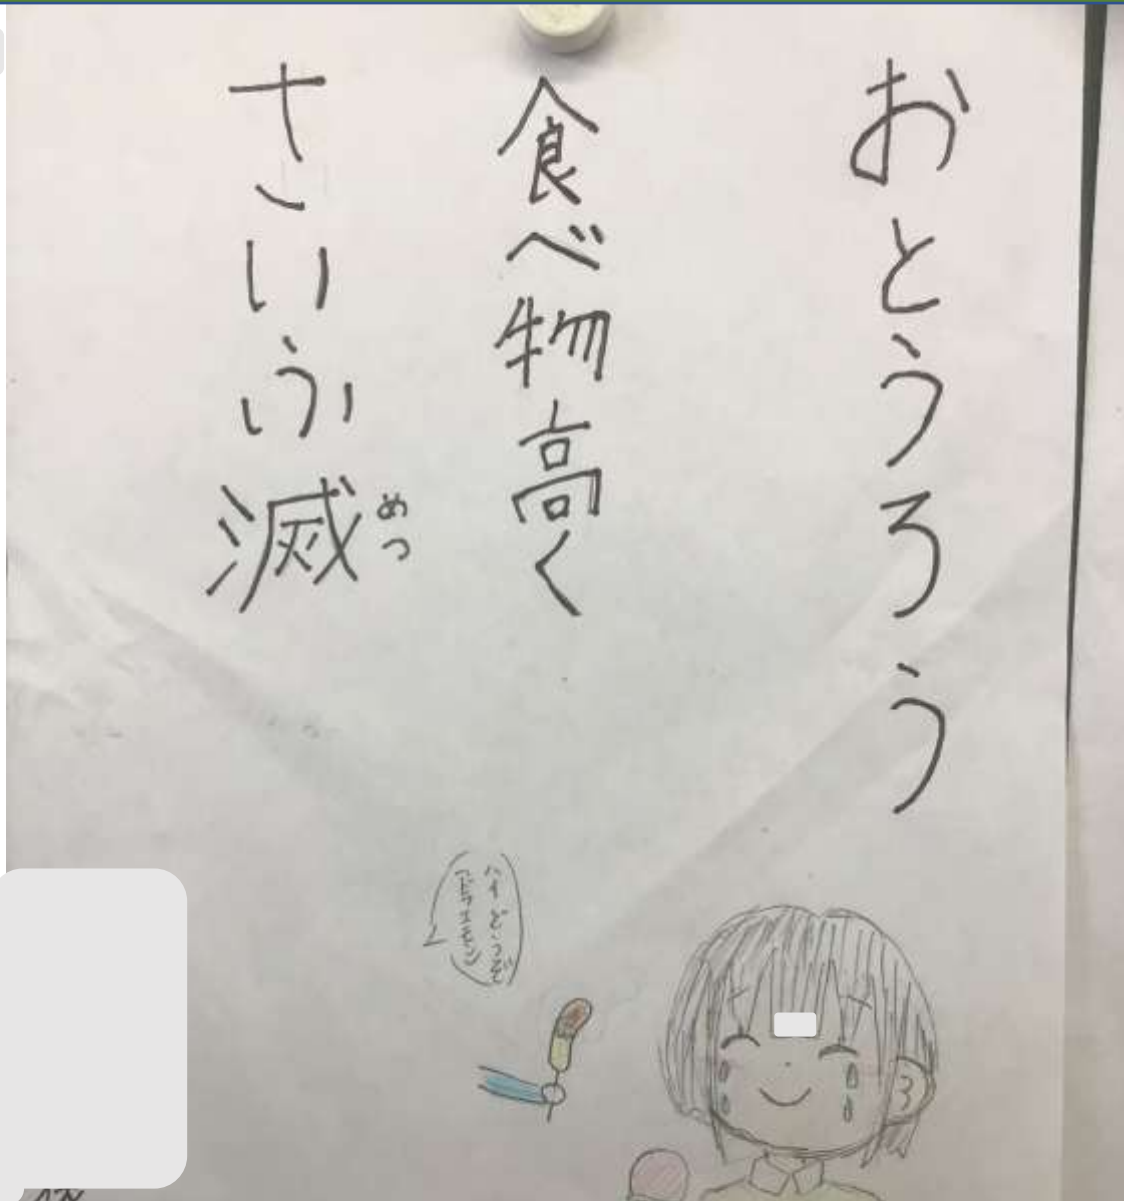 おとうろう
食べ物高く
さいふ滅
めつ
ハイどうぞ